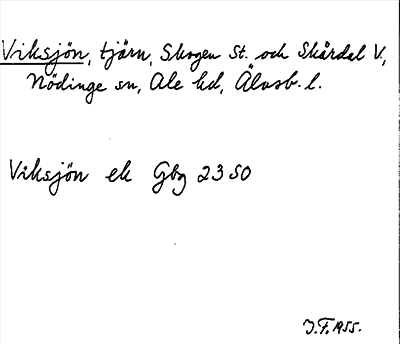 Viksjön, tjärn, Skogen St. och Skårdal V,
Nödinge sn, Ale hd, Älvsb. l.
Viksjön ek Gbg 2350
J.F. 1955.